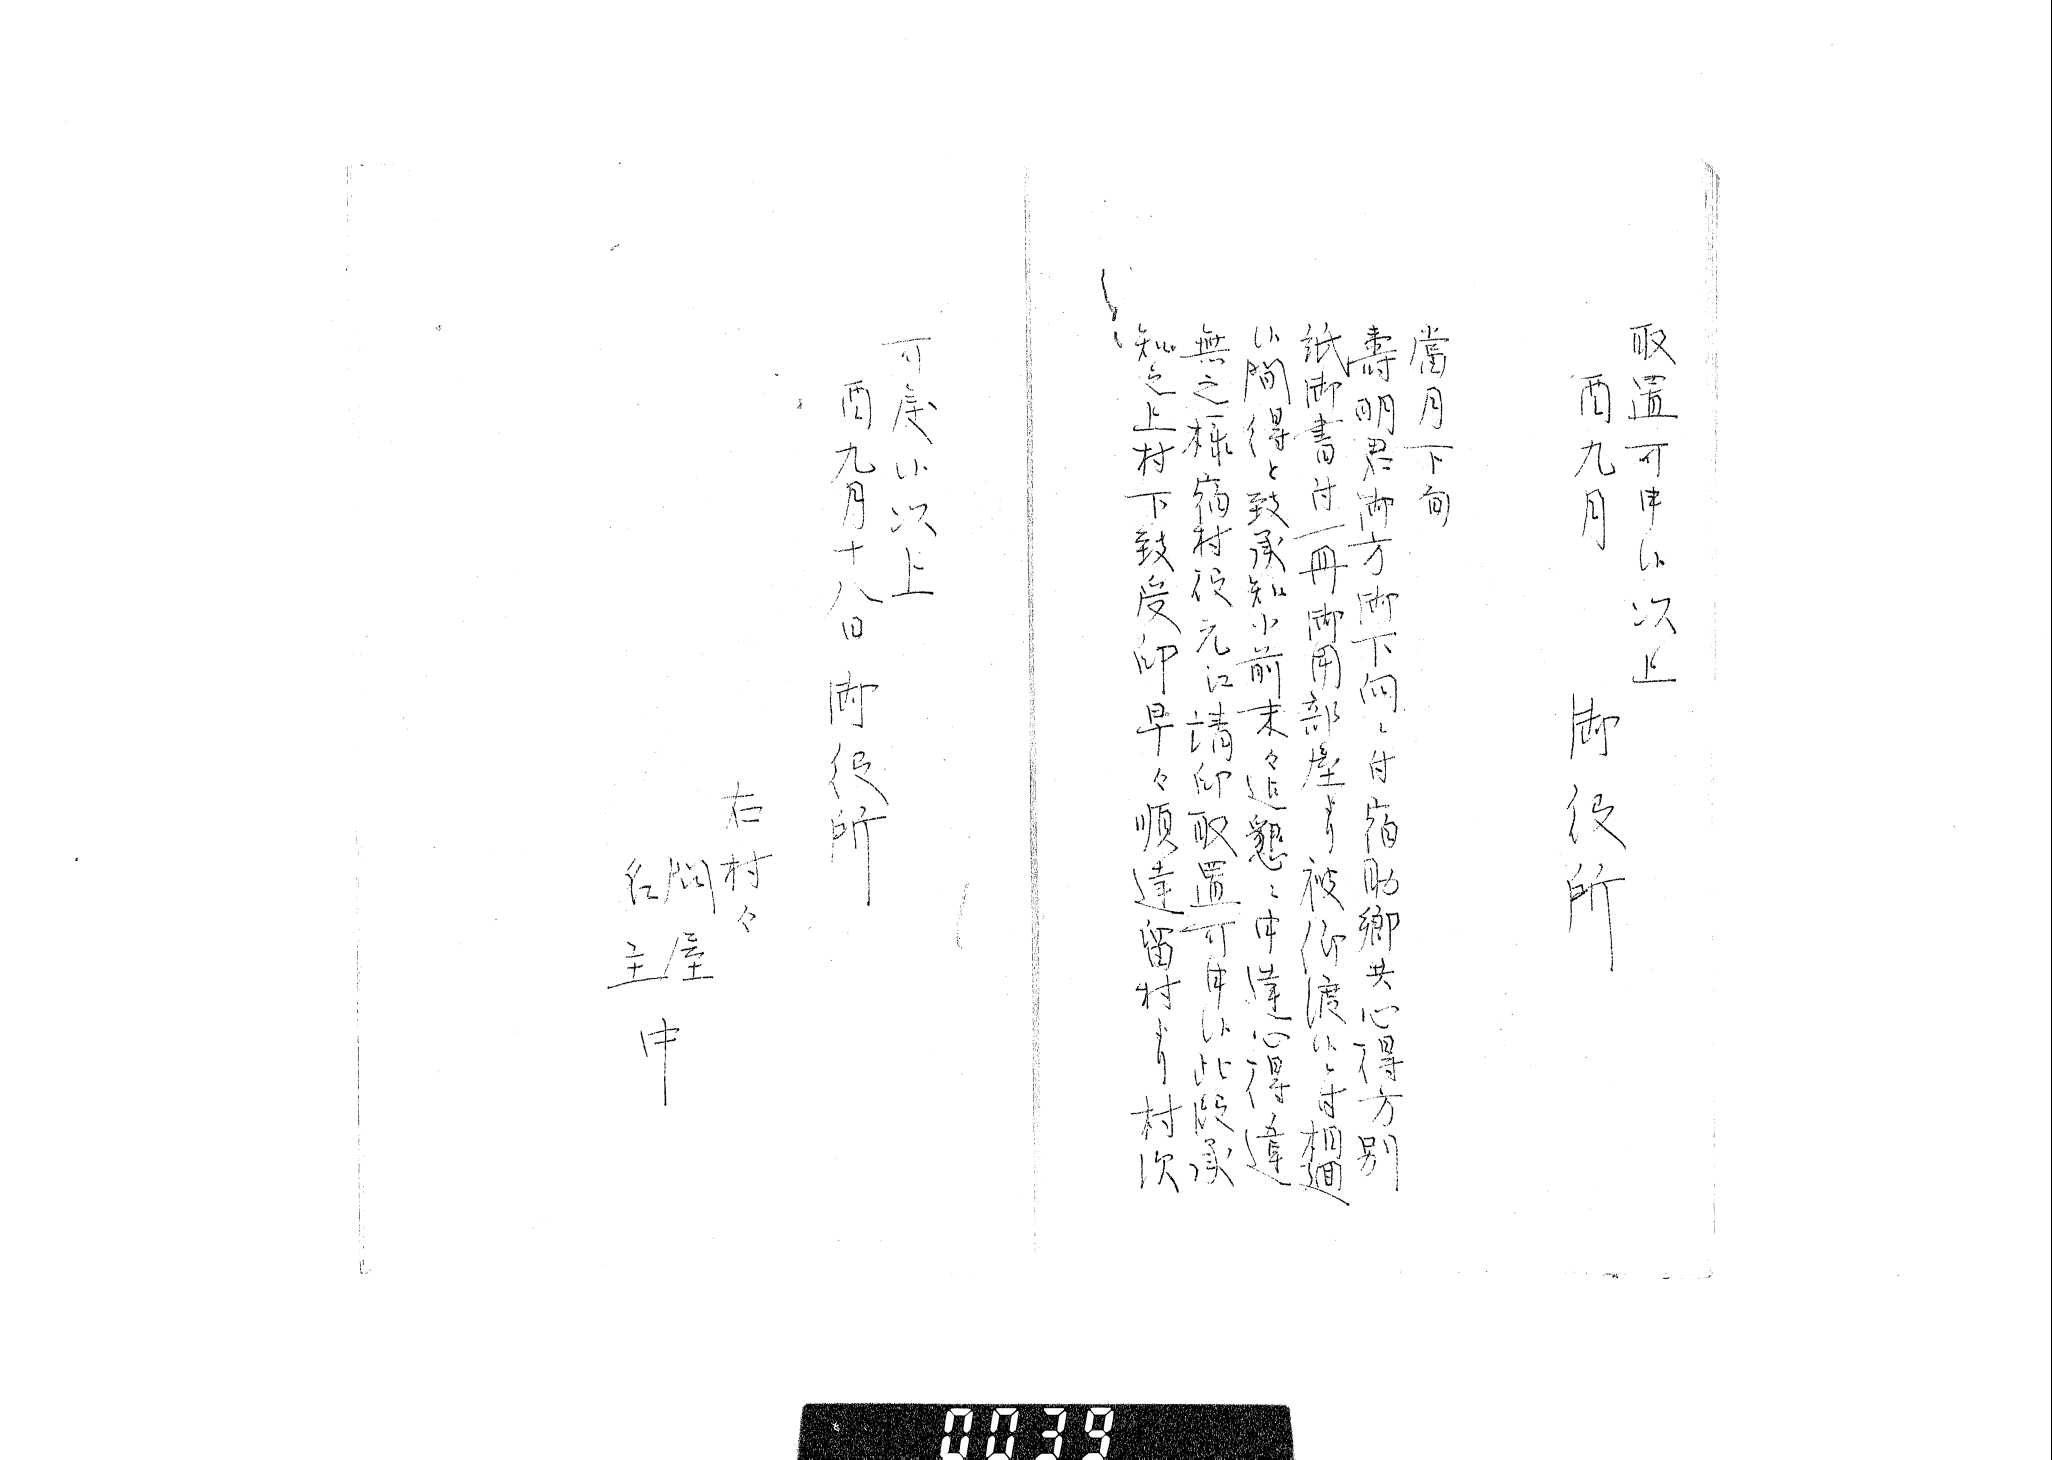 取置可申候以上
酉九月　御役所
當月下旬
壽明君御方御下向ニ付宿助郷共心得方別
紙御書付一冊御用部屋より被仰渡候ニ付相廻
候間得と致承知小前末々迄懇ニ申達心得違
無之様宿村役元江請印取置可申候此段承
知之上村下致受印早々順達留村より村次
可戻候以上
酉九月十八日　御役所
右村々
問屋
名主
中
0039